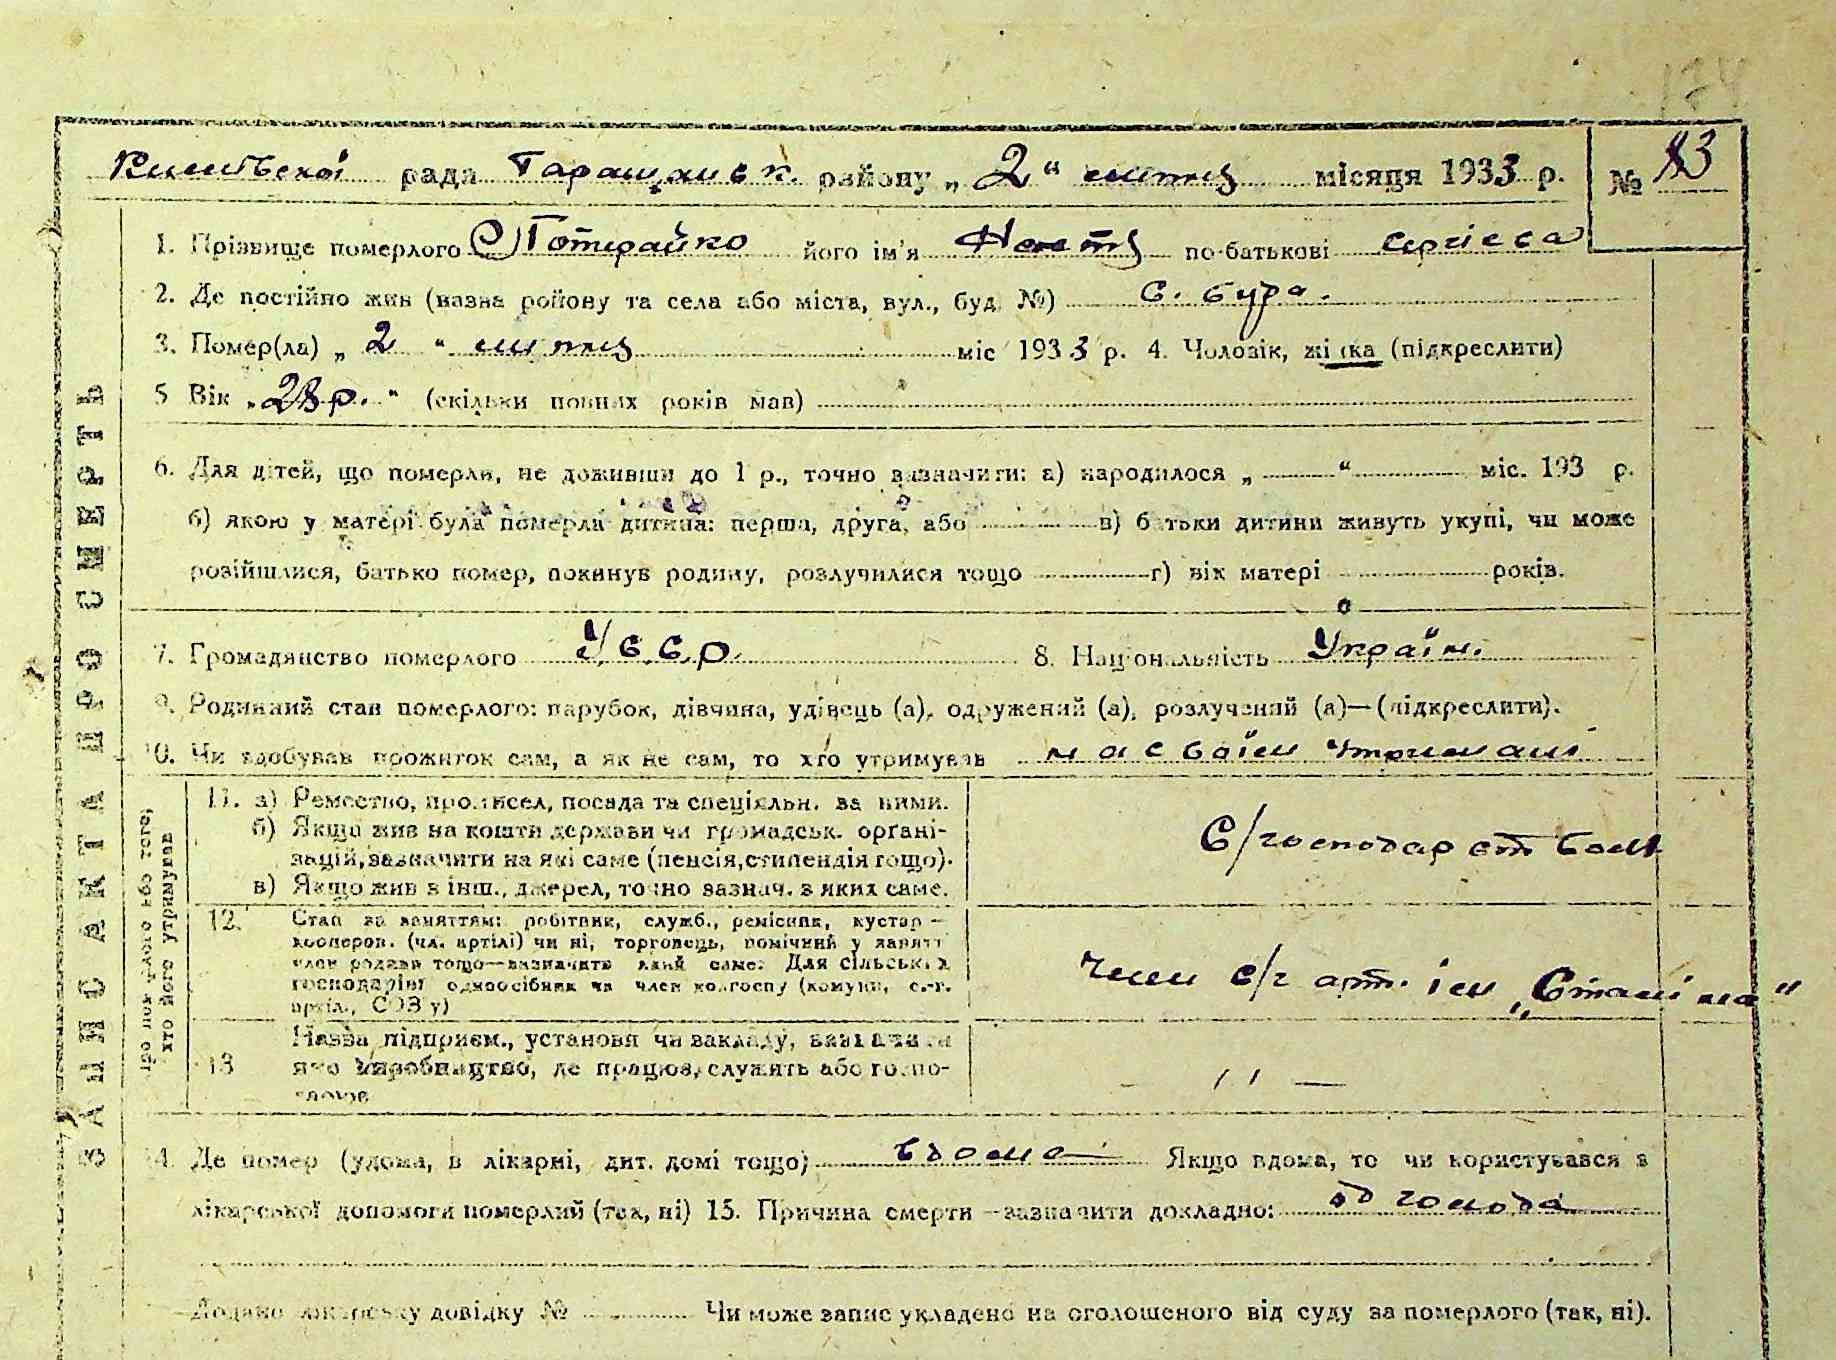 134
рада Таращанськ. району „ 2 “ липня місяця 1933 р. № 83
1. Прізвище померлого Потерайко його ім'я по-батькові Сергієва
2. Де постійно жив (назва району та села або міста, вул., буд. №) с. Бура.
3. Помер(ла) „ 2 “ липня міс 1933 р. 4. Чоловік, жінка (підкреслити)
5 Вік „28 р.“ (скільки повних років мав)
6. Для дітей, що померли, не доживши до 1 р., точно зазначити: а) народилося „ “ міс. 193 р.
б) якою у матері була померла дитина: перша, друга, або в) батьки дитини живуть укупі, чи може
розійшлися, батько помер, покинув родину, розлучилися тощо г) вік матері років.
7. Громадянство померлого У.С.С.Р. 8. Національність Україн.
9. Родинний стан померлого: парубок, дівчина, удівець (а), одружений (а), розлучений (а)—(підкреслити).
10. Чи здобував прожиток сам, а як не сам, то хто утримував на своїм утриманні
ЗАПИС АКТА ПРО СМЕРТЬ
про померлого або того,
хто його утримував
11. а) Ремество, промисел, посада та спеціяльн. за ними.
б) Якщо жив на кошти держави чи громадськ. орґані-
зацій, зазначити на які саме (пенсія, стипендія тощо).
в) Якщо жив з інш., джерел, точно зазнач. з яких саме.
С/господарством
12. Стан за заняттям: робітник, служб., ремісник, кустар —
кооперов. (чл. артілі) чи ні, торговець, помічний у занятті
член родини тощо—зазначити який саме: Для сільських
господарів: одноосібник чи член колгоспу (комуни, с.-г.
артіл., СОЗ у)
Член с/г арт. ім „Сталіна“
13 Назва підприєм., установи чи закладу, зазначити
яке виробництво, де працює, служить або госпо-
дарює
– ׀׀ —
14. Де помер (удома, в лікарні, дит. домі тощо) вдома Якщо вдома, то чи користувався з
лікарської допомоги померлий (так, ні) 15. Причина смерти —зазначити докладно: од голода
Додано лікарську довідку № Чи може запис укладено на оголошеного від суду за померлого (так, ні).